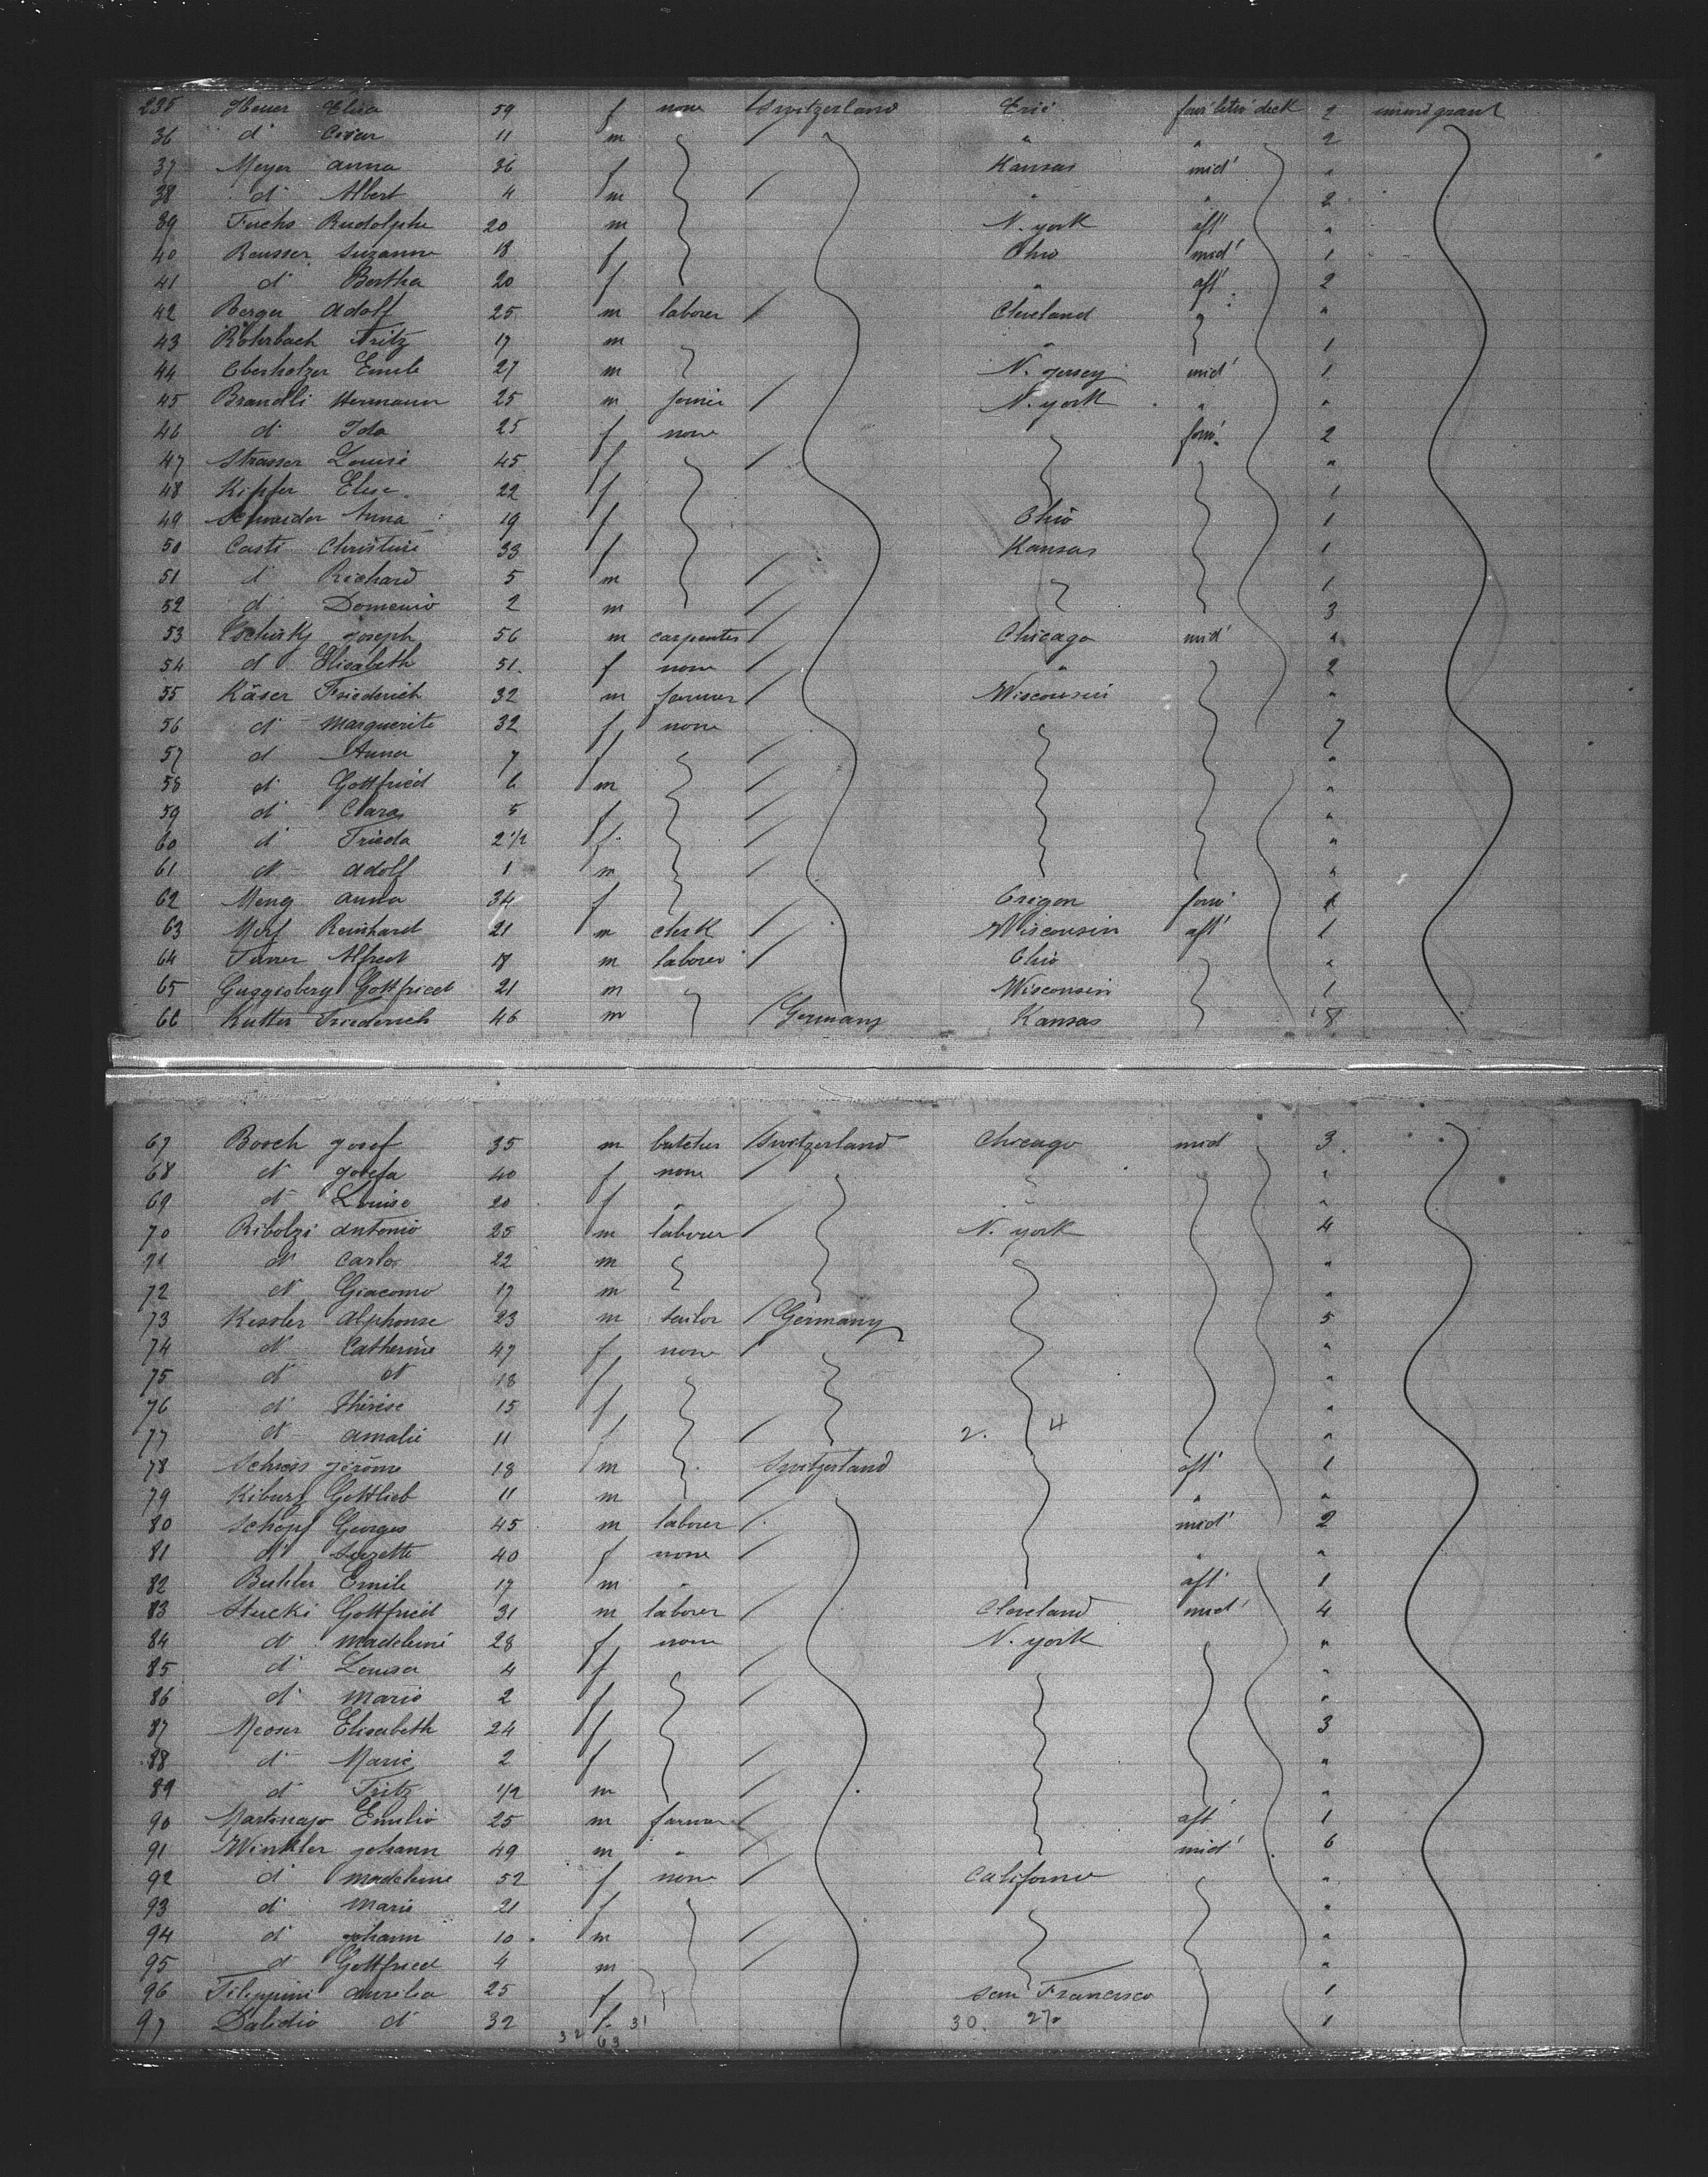 235 Heuer Elisa 59 f none Switzerland Erié forw' betw' deck 2 immigrant
36 d' 11 m " " 2
37 Meyer anna 36 f Kansas mid' "
38 d' Albert 4 m " " 2
39 Fuchs Rudolphe 20 m N. york aft' "
40 Reusser Suzanne 18 f Ohio mid' 1
41 d' Bertha 20 f " aft' 2
42 Berger adolf 25 m laborer Cleveland "
43 Rohrbach Fritz 17 m " 1
44 Oberholzer Emile 27 m N. Jersey mid' 1
45 Brandli Hermann 25 m N. york " "
46 d' Ida 25 f none forw' 2
47 Strasser Louise 45 f "
48 Kipfer Elise 22 f 1
49 Schneider Anna 19 f Ohio 1
50 Casti Christine 33 f Kansas 1
51 d' Richard 5 m 1
52 d' Domenio 2 m 3
53 Joseph 56 m carpenter Chicago mid' "
54 d' Elisabeth 51 f none " 2
55 Käser Friederich 32 m farmer Wisconsin "
56 d' Marguerite 32 f none 7
57 d' Anna 7 f "
58 d' Gottfried 6 m "
59 d' Clara 5 f "
60 d' Frieda 2 1/2 f "
61 d' adolf 1 m "
62 Meng anna 34 f Oregon forw' 1
63 Merf Reinhard 21 m clerk Wisconsin aft' 1
64 Furrer Alfred 18 m laborer Ohio "
65 Guggisberg Gottfried 21 m Wisconsin 1
66 Kutter Friederich 46 m Germany Kansas 8
67 Bosch Josef 35 m butcher Switzerland Chicago mid' 3
68 d' Josefa 40 f none "
69 d' Louise 20 f " "
70 Ribolzi antonio 25 m laborer N. york 4
71 d' Carlo 22 m "
72 d' Giacomo 17 m "
73 Kessler Alphonse 23 m tailor Germany 5
74 d' Catherine 47 f none "
75 d' d' 18 f "
76 d' Thérèse 15 f "
77 d' amalie 11 f 2. 4 "
78 Schiess Jérôme 18 m Switzerland aft' 1
79 Kiburz Gottlieb 11 m " "
80 Schöpf Georges 45 m laborer mid' 2
81 d' Suzette 40 f none " "
82 Buhler Emile 17 m " aft' 1
83 Stucki Gottfried 31 m laborer Cleveland mid' 4
84 d' madeleine 28 f none N. york "
85 d' Louisa 4 f "
86 d' Marie 2 f "
87 Moser Elisabeth 24 f 3
88 d' Marie 2 f "
89 d' Fritz 1/2 m "
90 Emilio 25 m farmer aft' 1
91 Winkler Johann 49 m " mid' 6
92 d' madeleine 52 f none California "
93 d' Marie 21 f "
94 d' Johann 10 m "
95 d' Gottfried 4 m "
96 Filippini aurelia 25 f San Francisco 1
97 Dalidio d' 32 f 31 30. 27. 1
32 63